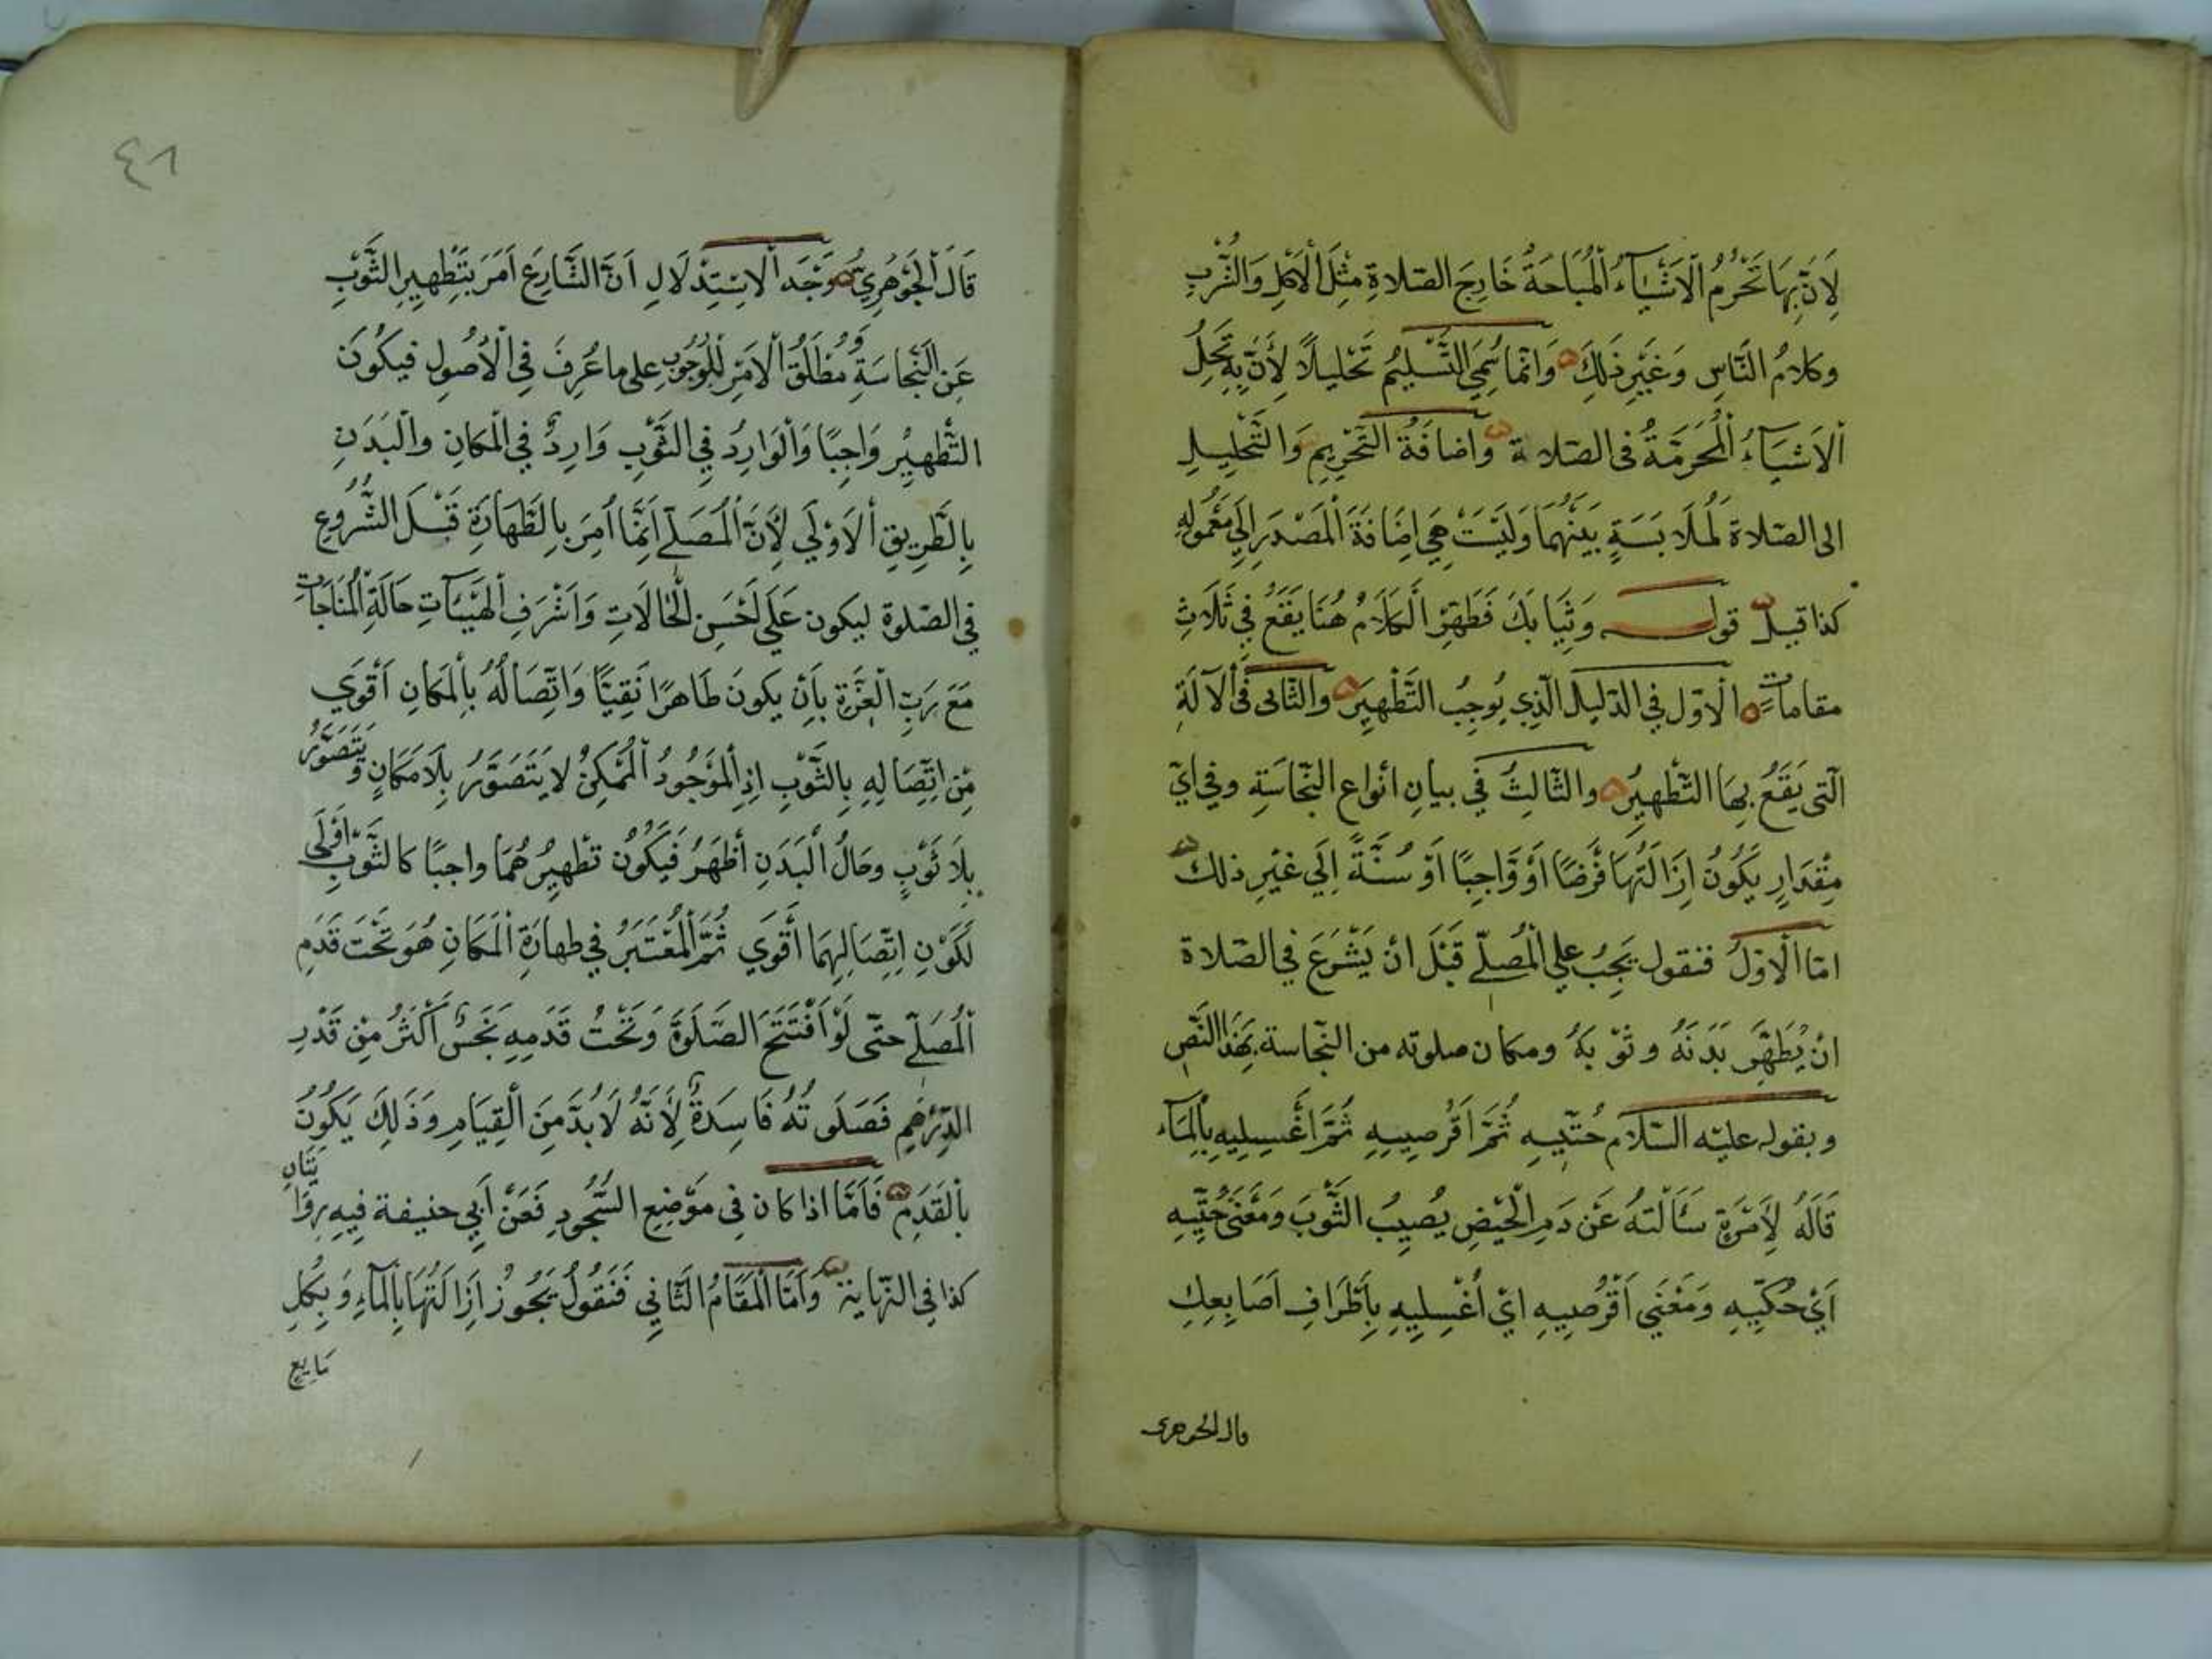 لِاَنَّ بِهَا تَحْرُمُ الْاَشْيَآءُ الْمُبَاحَةُ خَارِجَ الصّلاةِ مِثْلَ الْاَكْلِ وَالشُّرْبِ
وكلامُ النَّاسِ وَغَيْرِ ذَلِكَ وَانّما سُمِّيَ التَّسْلِيْمُ تَحْلِيلًا لِأَنَّ بِهِ تَحِلُّ
اْلاَشْيَآءُ الْمُحَرَّمَةُ فى الصّلاة وَاضَافَةُ التَّحْرِيمِ وَالتَّحْلِيلِ
الى الصّلاة لِمُلَابَسَةٍ بَيْنَهُمَا وَلَيْسَتْ هِيَ اِضَافَةَ الْمَصْدَرِ اِلَي مَعْمُولِهِ
كذا قيل قوله وَثِيَابَكَ فَطَهِّرْ اَلْكَلَامُ هُنَا يَقَعُ فِي ثَلَاثِ
مقامات الْاَوّل في الدّليل الّذِي يُوجِبُ التَّطْهِيرَ والثّانى فى الْآلَةِ
الّتى يَقَعُ بِهَا التّطْهِيرُ والثّالِثُ في بيانِ انْواع النّجَاسَةِ وفي ايّ
مِقْدَارٍ يَكُونُ اِزَالَتُهَا فَرْضًا اَوْ وَاجِبًا اَوْ سُنَّةً اِلَي غَيْرِ ذلك
امّا الْاوّلُ فنقول يَجِبُ علي الْمُصلّي قَبْلَ انْ يَشْرَعَ في الصّلاة
انْ يُطَهِّرَ بَدَنَهُ وثَوْبَهُ ومكان صلوته من النّجاسة بِهَذَا النّصِ
وبقوله عليه السّلام حُتّيِهِ ثُمَّ اَقْرُصِيهِ ثُمَّ اَغْسِلِيهِ بِالْمَآء
قَالَهُ لِاَمْرَةٍ سَئَالَتْهُ عَنْ دَمِ الْحَيْضِ يُصِيبُ الثَّوْبَ وَمَعْنَى حُتِّيهِ
اَيْ حُكّيِهِ وَمَعْنَي اَقْرُصِيهِ ايْ اُغْسِلِيهِ بِاَطْرَافِ اَصَابِعِكِ
قال الجوهرى
٤٨
قَالَ الْجَوْهَرِيُّ وَجْهُ الْاِسْتِدْلَالِ اَنَّ الشَّارِعَ اَمَرَ بِتَطْهِيرِ الثَّوْبِ
عَنِ النَّجَاسَةِ وَمُطْلَقُ الْاَمْرِ لِلْوُجُوبِ على ما عُرِفَ فِي الْاُصُولِ فيكُونُ
التَّطْهِيْرُ وَاجِبًا وَالْوَارِدُ فِي الثَّوْبِ وَارِدٌ فِي الْمَكانِ والْبَدَنِ
بِالطَّرِيقِ الْاَوْلَي لِأَنَّ الْمُصَلِّي اِنَّمَا اُمِرَ بِالطَّهَارَةِ قَبْلَ الشُّرُوعِ
فِي الصّلوة ليكون عَلَي اَحْسَنِ الْحَالَاتِ وَاَشْرَفِ الْهَيْئَآتِ حَالَةِ الْمُنَاجَاتِ
مَعَ رَبِّ الْعِزَّةِ بِاَنْ يكونَ طَاهِرًا نَقِيًّا وَاتِّصَالُهُ بِالْمَكَانِ اَقْوَي
مِنْ اِتِّصَالِهِ بِالثَّوْبِ اِذِ الْمَوْجُودُ الْمُمْكِنُ لا يَتَصَوَّرُ بِلَا مَكَانٍ وَيَتَصَوَّرُ
بِلَا ثَوْبٍ وحَالُ الْبَدَنِ أظْهَرُ فَيَكُونُ تَطْهِيرُهُمَا واجبًا كالثَّوْبِ اَوْلَى
لِكَوْنِ اِتِّصَالِهِمَا أَقْوَي ثُمَّ الْمُعْتَبَرُ في طهارَةِ الْمَكَانِ هُوَ تَحْتَ قَدَمِ
الْمُصَلِّي حتّى لَوْ اَفْتَتَحَ الصَّلَوةَ وَتَحْتَ قَدَمِهِ نَجَسٌ اَكْثَرُ مِنْ قَدْرِ
الدِّرْهَمِ فَصَلَوتُهُ فَاسِدَةٌ لِأَنَّهُ لَابُدَّ مِنَ الْقِيَامِ وَذَلِكَ يَكُونُ
بِالْقَدَمِ فَأمَّا اذا كان فى مَوْضِعِ السُّجُودِ فَعَنْ اَبِي حنيفة فِيهِ رِوَايَتَانِ
كذا فِي النّهاية وَاَمَّا الْمَقَامُ الثَّانِي فَنَقُولُ يَجُوزُ اِزَالَتُهَا بِالْمَآءِ وَبِكُلِّ
مَايِعٍ